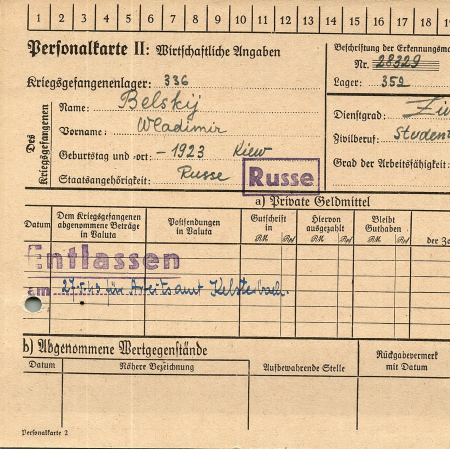 1 2 3 4 5 6 7 8 9 10 11 12 13 14 15 16 17 18 19
Personalkarte II: Wirtschaftliche Angaben
Beschriftung der Erkennungsma
Nr. 28329
Kriegsgefangenenlager: 336
Lager: 352
Des Kriegsgefangenen
Name: Belskij
Dienstgrad: Ziv
Vorname: Wladimir
Zivilberuf: Student
Geburtstag und -ort: - 1923 Kiew
Grad der Arbeitsfähigkeit:
Staatsangehörigkeit: Russe
Russe
a) Private Geldmittel
Datum
Dem Kriegsgefangenen abgenommene Beträge in Valuta
Postsendungen in Valuta
Gutschrift in
RM. Rpf
Hiervon ausgezahlt
RM. Rpf
Bleibt Guthaben
RM. Rpf
der Za
Entlassen
am 27.5.43 für Arbeitsamt Kelsterbach.
b) Abgenommene Wertgegenstände
Datum
Nähere Bezeichnung
Aufbewahrende Stelle
Rückgabevermerk mit Datum
Personalkarte 2